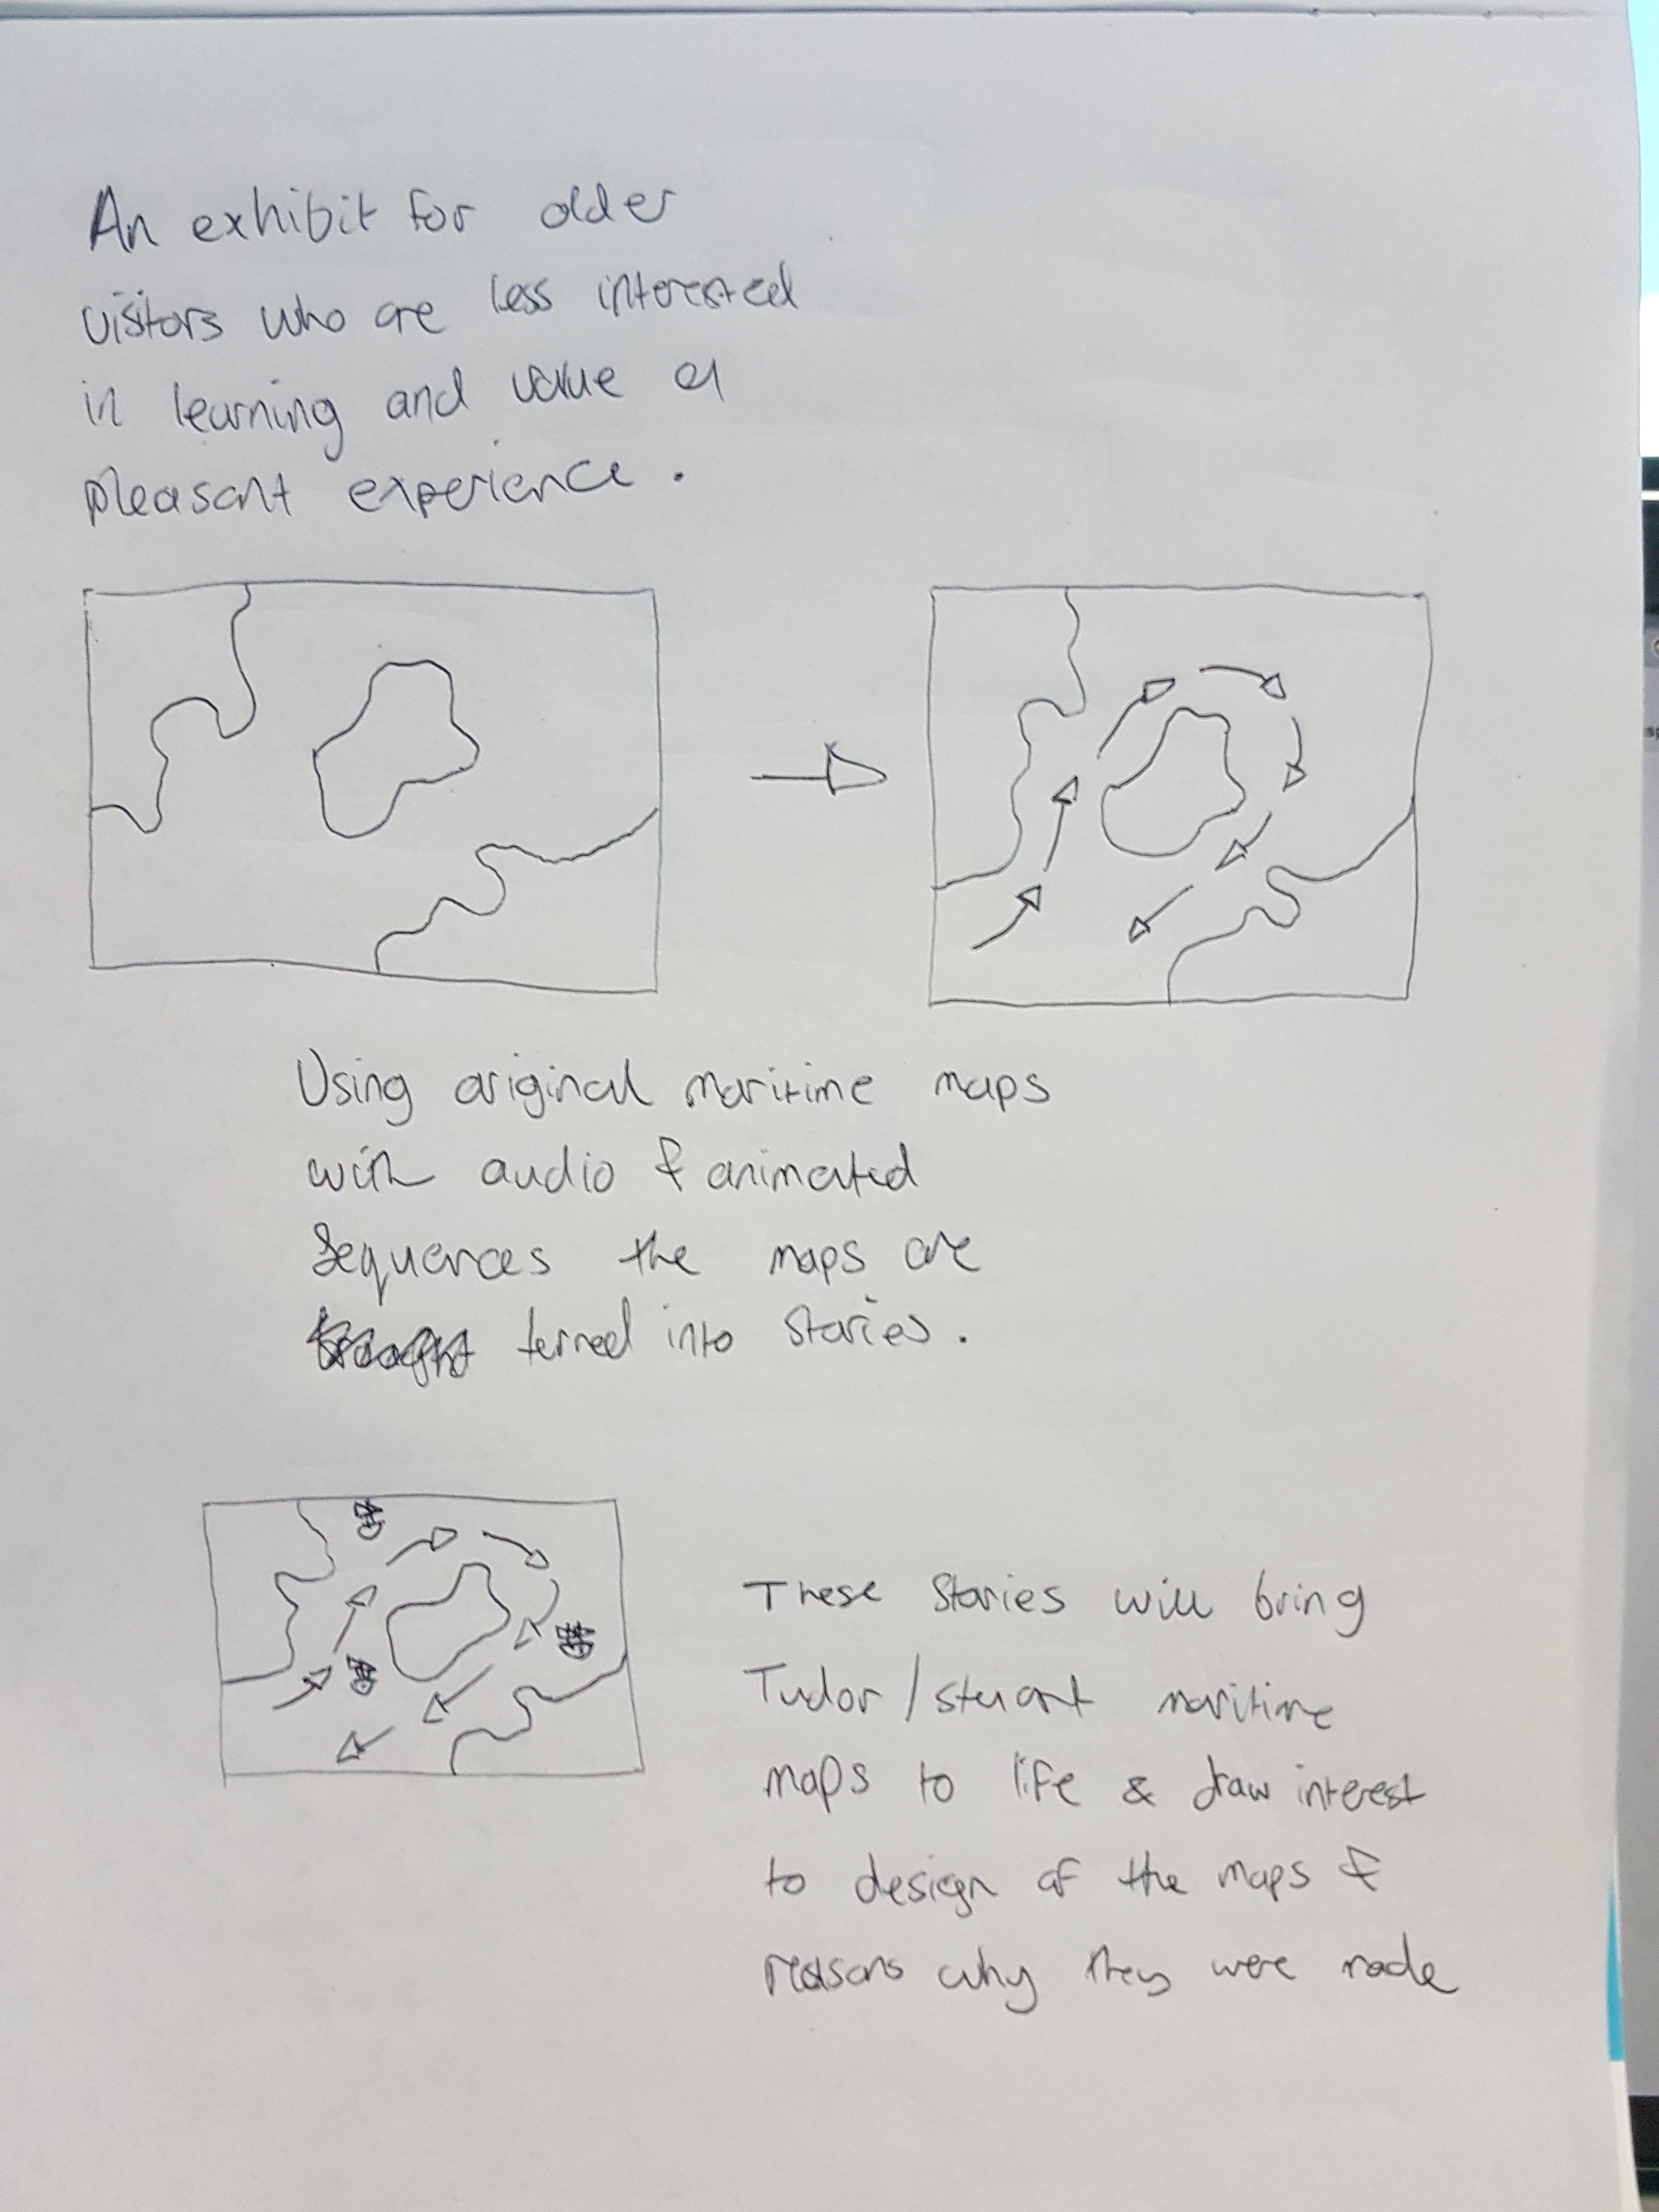 An exhibit for older
visitors who are less interested
in learning and value a
pleasant experience.
Using original maritime maps
with audio & animated
Sequences the maps are
terned into stories.
These stories will bring
Tudor/stuart maritime
maps to life & draw interest
to design of the maps &
reasons why they were made